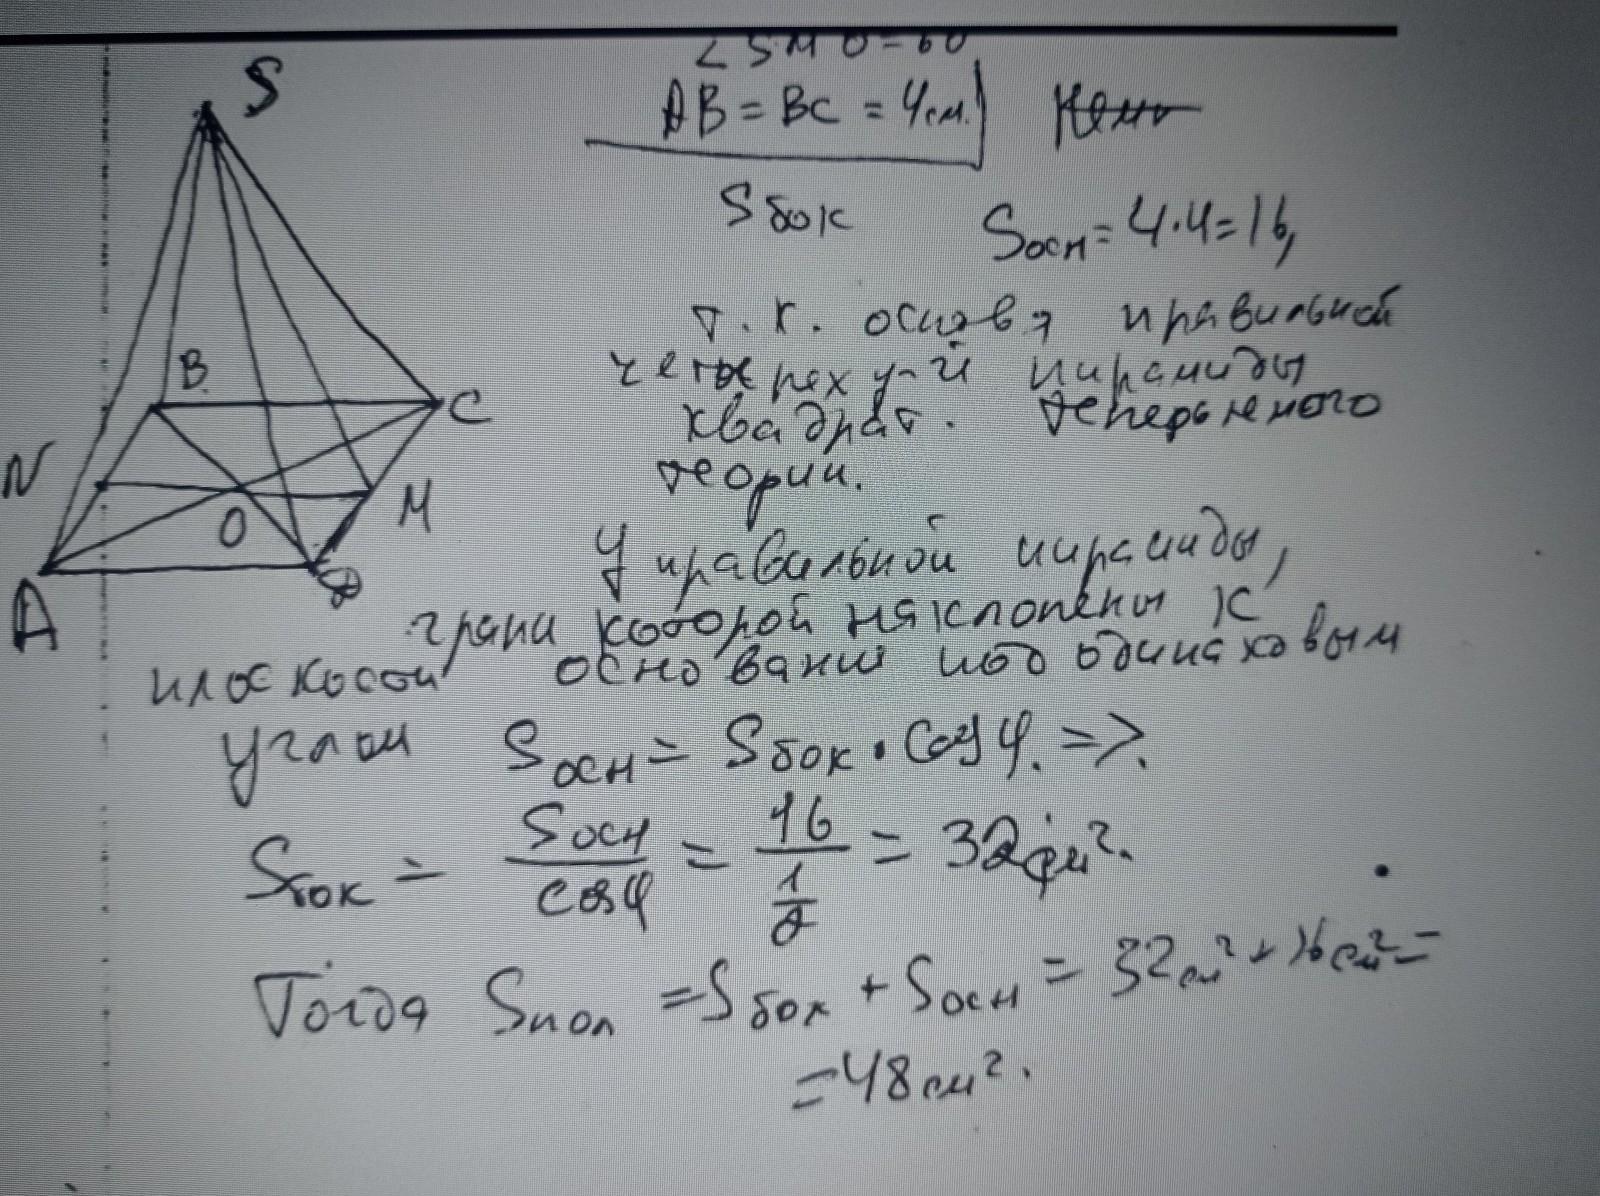 ∠SMO=60
AB = BC = 4см.
S бок
Sосн = 4·4=16,
т.к. основа правильной
четырех у-й пирамиды
квадрат. теперь немого
теории.
У правильной пирамиды,
грани которой наклонены к
плоскосои основания под одинаковым
углом Sосн = Sбок · cosφ. =>.
Sбок = Sосн/cosφ = 16/(1/2) = 32см².
Тогда Sпол = Sбок + Sосн = 32см² + 16см² =
= 48см².
S
B
C
N
O
M
A
D